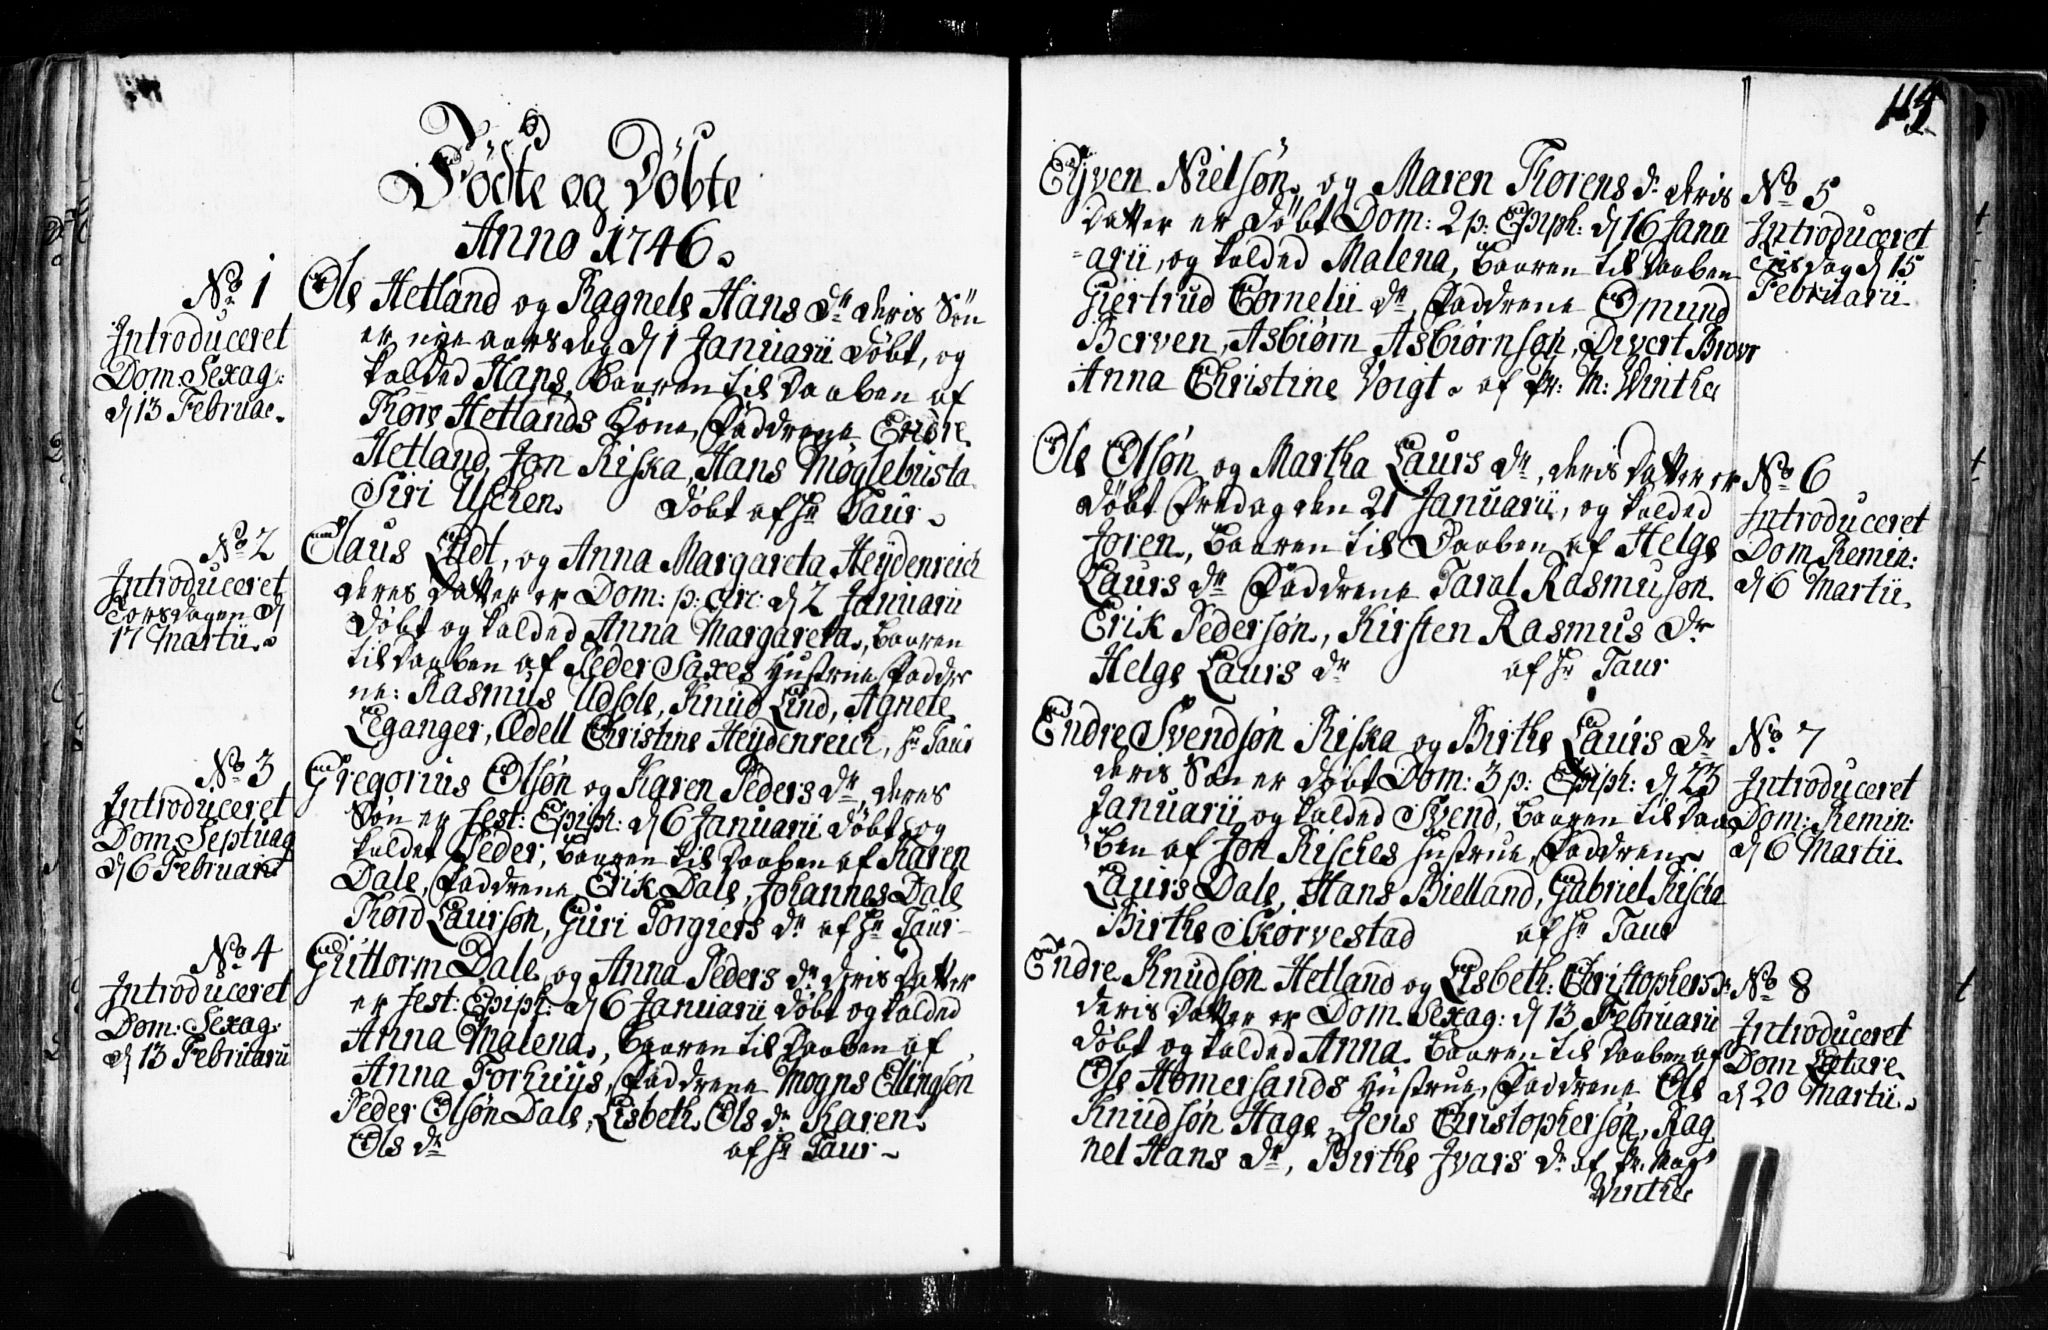 Födte og Döbte
Anno 1746.
No 1
Introduceret
Dom: Sexag:
d 13 Februae.
Ole Hetland og Ragnele Hans Dr deris Sön
er nye aars dag d 1 Januarii döbt, og
kalded Hans, baaren til Daaben af
Tkore Hetlands Kone, Faddrene Endre
Hetland, Jon Riska, Hans Møglebusta
Siri Uschen. Döbt af Hr Taur.
No 2
Introduceret
Torsdagen d
17 Martii.
Claus Lydt, og Anna Margareta Heydenreich
deres Datter er Dom: p: Circ: d 2 Januarii
Döbt og kalded Anna Margareta, baaren
til Daaben af Peder Saxes Hustrue, Faddre
ne: Rasmus Udsole, Knud Lind, Agnete
Leganger, Ædell Christine Heydenreich, Hr Taur
No 3
Introduceret
Dom: Septuag
d 6 Februarii
Gregorius Olsøn og Karen Peders dr, deres
Søn er Fest: Epiph: d 6 Januarii döbt og
kaldet Peder, baaren til Daaben af Karen
Dale, Faddrene Erik Dale, Johannes Dale
Tkord Laursøn, Guri Torgiers dr af Hr Taur
No 4
Introduceret
Dom: Sexag:
d 13 Februarii
Guttorm Dale og Anna Peders dr deris Datter
er Fest: Epiph: d 6 Januarii döbt og kalded
Anna Malena, baaren til Daaben af
Anna Torhuus, Faddrene Mogns Ellingsøn
Peder Olsøn Dale, Lisbeth Ols dr Karen
Ols dr af Hr Taur
114
Eyven Nielsøn og Maren Tkorens dr deris
Datter er döbt Dom: 2 p: Epiph: d 16 Janu
arii, og kalded Malena, baaren til Daaben
Giertrud Cornelii dr, Faddrene Osmund
Berven, Asbiørn Asbiørnsøn, Divert Brour
Anna Christine Voigt. af Pr: M: Winthe
No 5
Introduceret
Tisdag d 15
Februarii
Ole Olsøn og Martha Laurs dr, deris Datter er
döbt Fredag den 21 Januarii, og kalded
Joren, baaren til Daaben af Helge
Laurs dr Faddrene Taral Rasmusøn
Erik Pedersøn, Kirsten Rasmus dr
Helge Laurs dr af Hr Taur
No 6
Introduceret
Dom. Remin:
d 6 Martii.
Endre Svendsøn Riska og Birthe Laurs dr
deris Søn er döbt Dom: 3 p: Epiph: d 23
Januarii og kalded Svend, baaren til Daa
ben af Jon Risches Hustrue, Faddrene
Laurs Dale, Hans Bielland, Gabriel Rischa
Birthe Skørvestad af Hr Taur
No 7
Introduceret
Dom: Remin:
d 6 Martii.
Endre Knudsøn Hetland og Lisbeth: Christophers dr
deris Datter er Dom. Sexag: d 13 Februarii
döbt og kalded Anna. baaren til Daaben af
Ole Homersands Hustrue, Faddrene Ole
Knudsøn Hage, Jens Christophersøn, Rag
nel Hans dr, Birthe Jvars dr af Pr. Mag
Winthe
No 8
Introduceret
Dom Letare
d 20 Martii.